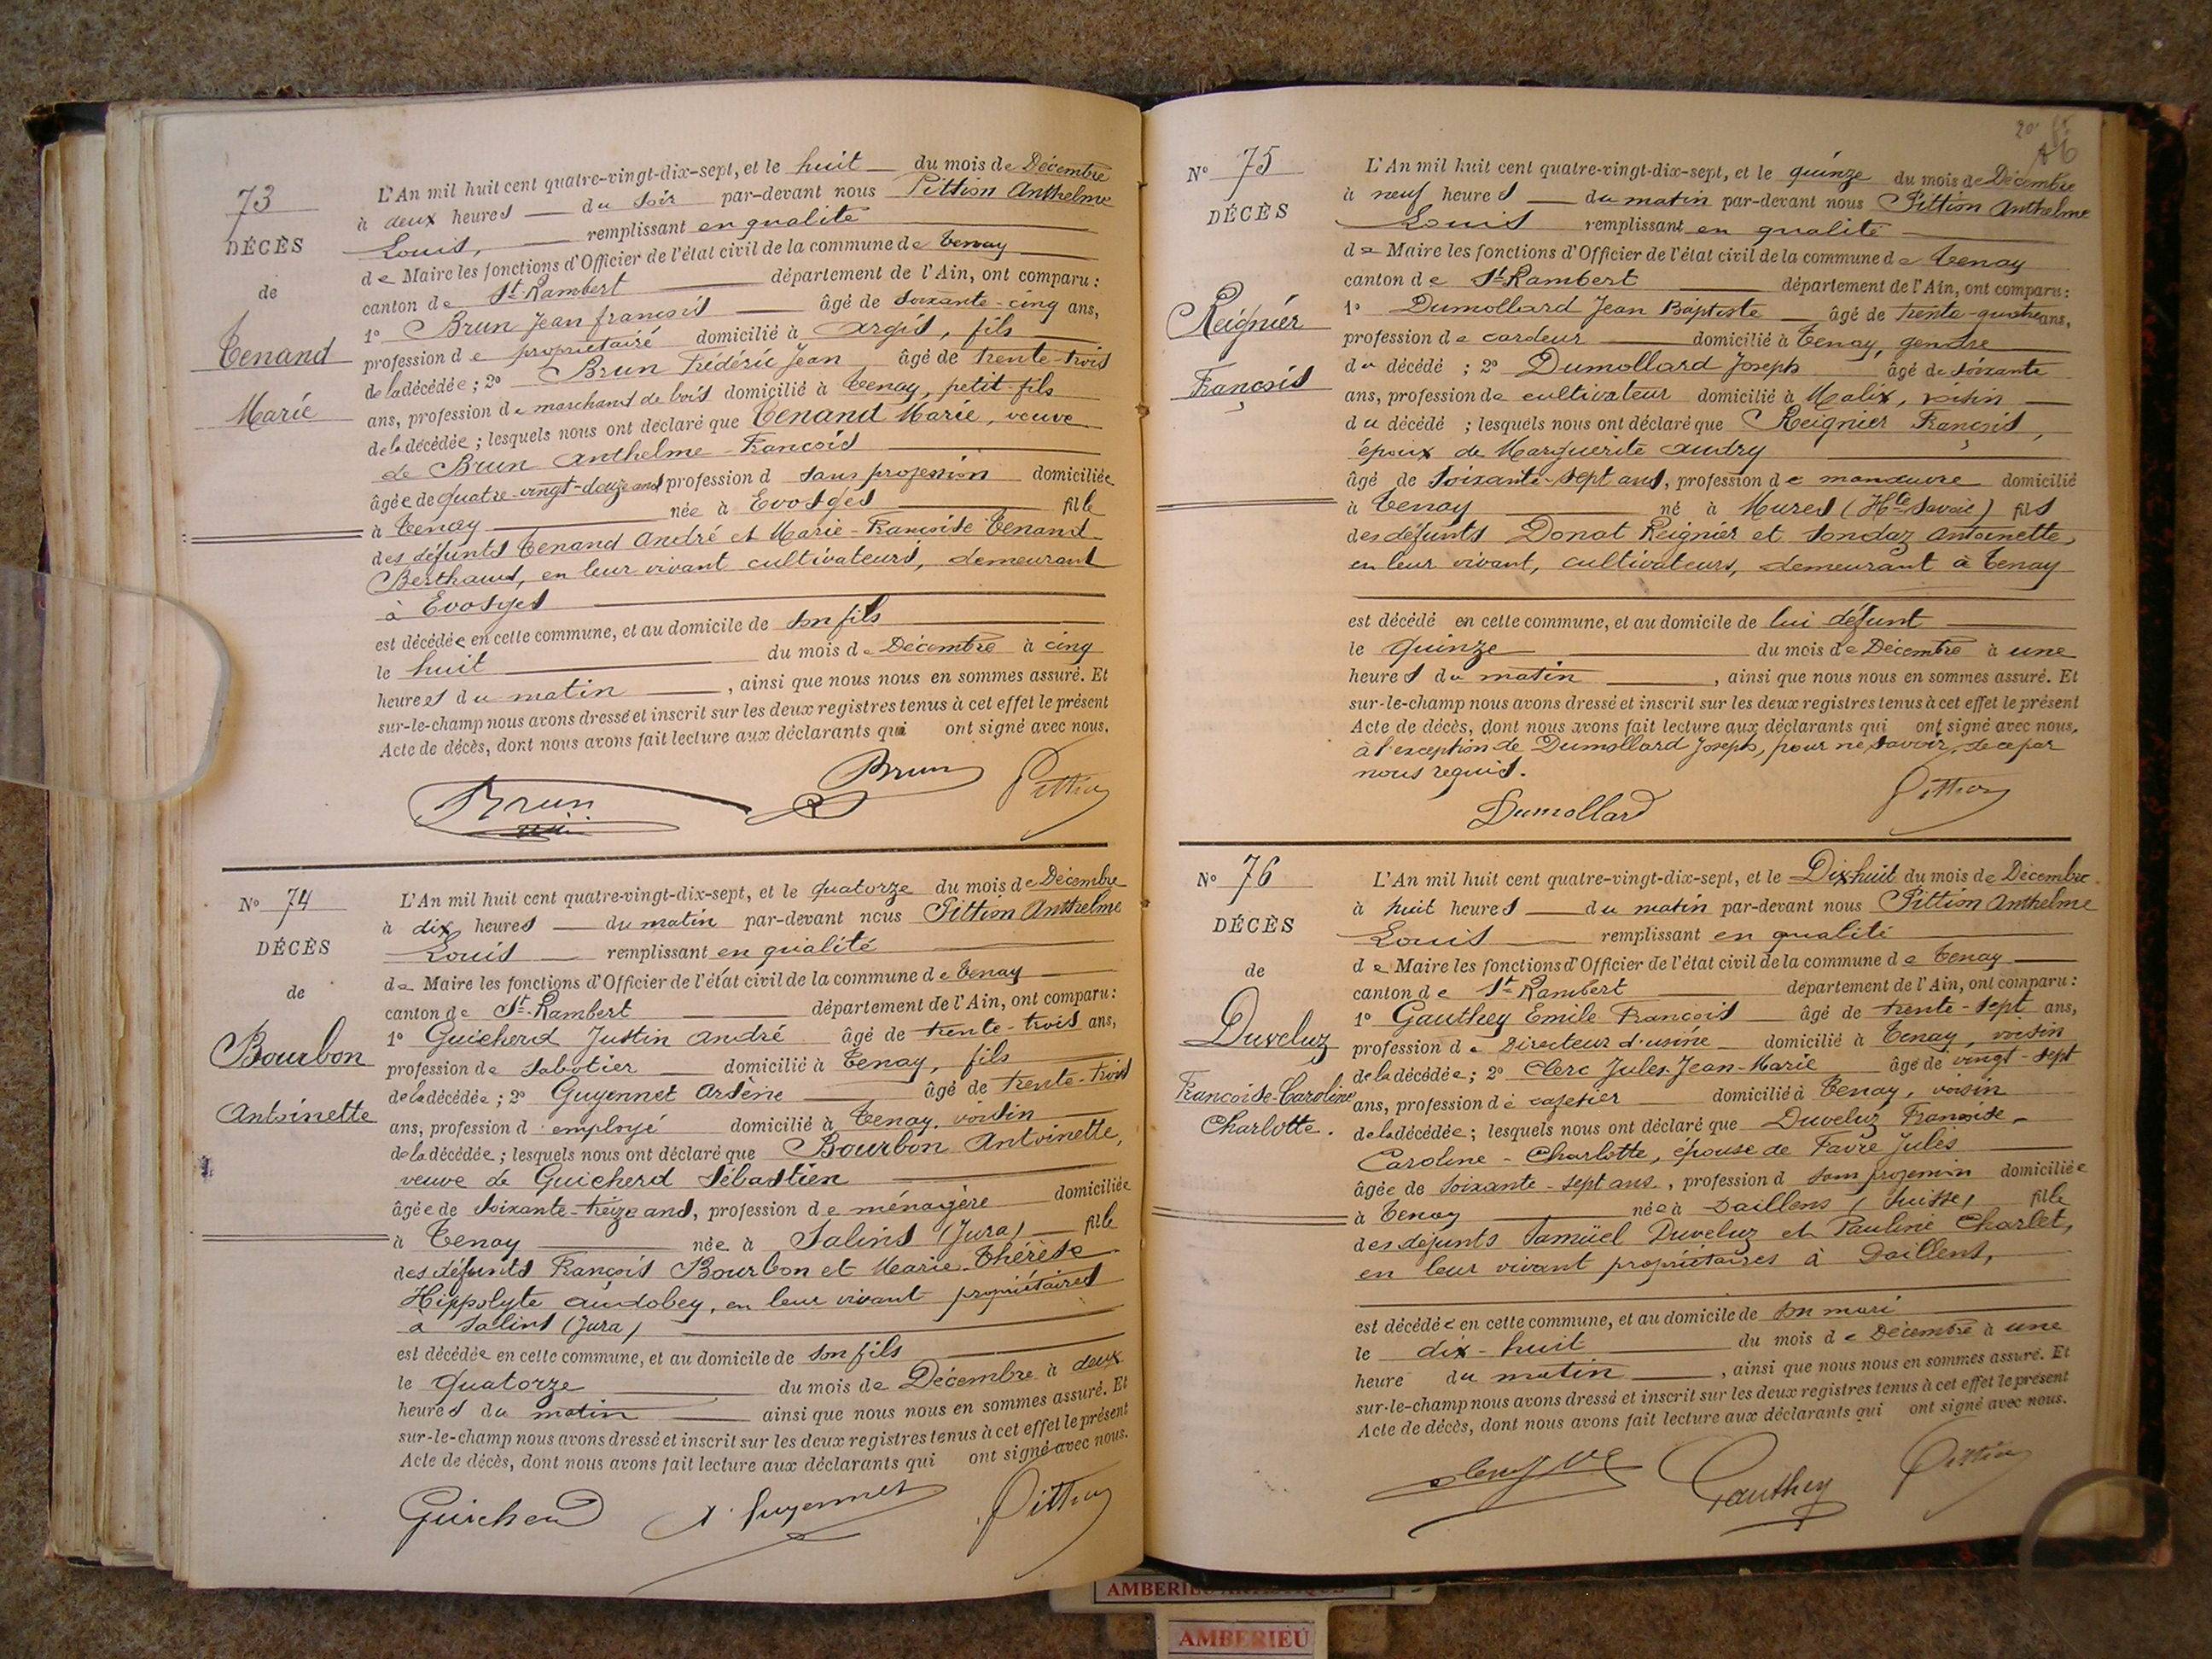 73
DÉCÈS
de
Tenand
Marie
L'An mil huit cent quatre-vingt-dix-sept, et le huit du mois de Décembre
à deux heures du soir par-devant nous Pittion Anthelme
Louis, remplissant en qualité
de Maire les fonctions d'Officier de l'état civil de la commune de Tenay
canton de St-Rambert département de l'Ain, ont comparu :
1º Brun Jean françois âgé de soixante-cinq ans,
profession de propriétaire domicilié à Argis, fils
de la décédée ; 2º Brun Frédéric Jean âgé de trente-trois
ans, profession de marchand de bois domicilié à Tenay, petit-fils
de la décédée ; lesquels nous ont déclaré que Tenand Marie, veuve
de Brun Anthelme-François
âgée de quatre-vingt-douze ans profession d sans profession domiciliée
à Tenay née à Evosges fille
des défunts Tenand André et Marie-Françoise Tenand
Berthaud, en leur vivant cultivateurs, demeurant
à Evosges
est décédée en cette commune, et au domicile de son fils
le huit du mois de Décembre à cinq
heures du matin, ainsi que nous nous en sommes assuré. Et
sur-le-champ nous avons dressé et inscrit sur les deux registres tenus à cet effet le présent
Acte de décès, dont nous avons fait lecture aux déclarants qui ont signé avec nous.
Brun Brun Pittion
Nº 74
DÉCÈS
de
Bourbon
Antoinette
L'An mil huit cent quatre-vingt-dix-sept, et le quatorze du mois de Décembre
à dix heures du matin par-devant nous Pittion Anthelme
Louis remplissant en qualité
de Maire les fonctions d'Officier de l'état civil de la commune de Tenay
canton de St-Rambert département de l'Ain, ont comparu :
1º Guicherd Justin André âgé de trente-trois ans,
profession de sabotier domicilié à Tenay, fils
de la décédée ; 2º Guyennet Arsène âgé de trente-trois
ans, profession d employé domicilié à Tenay, voisin
de la décédée ; lesquels nous ont déclaré que Bourbon Antoinette,
veuve de Guicherd Sébastien
âgée de soixante-treize ans, profession de ménagère domiciliée
à Tenay née à Salins (Jura) fille
des défunts François Bourbon et Marie-Thérèse
Hippolyte Audobey, en leur vivant propriétaires
à Salins (Jura)
est décédée en cette commune, et au domicile de son fils
le quatorze du mois de Décembre à deux
heures du matin ainsi que nous nous en sommes assuré. Et
sur-le-champ nous avons dressé et inscrit sur les deux registres tenus à cet effet le présent
Acte de décès, dont nous avons fait lecture aux déclarants qui ont signé avec nous.
Guicherd A. Guyennet Pittion
Nº 75
DÉCÈS
Reignier
François
L'An mil huit cent quatre-vingt-dix-sept, et le quinze du mois de Décembre
à neuf heures du matin par-devant nous Pittion Anthelme
Louis remplissant en qualité
de Maire les fonctions d'Officier de l'état civil de la commune de Tenay
canton de St-Rambert département de l'Ain, ont comparu :
1º Dumollard Jean Baptiste âgé de trente-quatre ans,
profession de cardeur domicilié à Tenay, gendre
du décédé ; 2º Dumollard Joseph âgé de soixante
ans, profession de cultivateur domicilié à Malix, voisin
du décédé ; lesquels nous ont déclaré que Reignier François,
époux de Marguerite Audry
âgé de soixante-sept ans, profession de manœuvre domicilié
à Tenay né à Mures (Hte Savoie) fils
des défunts Donat Reignier et Sondaz Antoinette,
en leur vivant, cultivateurs, demeurant à Tenay
est décédé en cette commune, et au domicile de lui défunt
le quinze du mois de Décembre à une
heures du matin, ainsi que nous nous en sommes assuré. Et
sur-le-champ nous avons dressé et inscrit sur les deux registres tenus à cet effet le présent
Acte de décès, dont nous avons fait lecture aux déclarants qui ont signé avec nous,
à l'exception de Dumollard Joseph, pour ne savoir, de ce par
nous requis.
Dumollard Pittion
Nº 76
DÉCÈS
de
Duveluz
Françoise-Caroline
Charlotte.
L'An mil huit cent quatre-vingt-dix-sept, et le Dix-huit du mois de Décembre
à huit heures du matin par-devant nous Pittion Anthelme
Louis remplissant en qualité
de Maire les fonctions d'Officier de l'état civil de la commune de Tenay
canton de St-Rambert département de l'Ain, ont comparu :
1º Gauthey Emile François âgé de trente-sept ans,
profession de Directeur d'usine domicilié à Tenay, voisin
de la décédée ; 2º Clerc Jules-Jean-Marie âgé de vingt-sept
ans, profession de cafetier domicilié à Tenay, voisin
de la décédée ; lesquels nous ont déclaré que Duveluz Françoise-
Caroline-Charlotte, épouse de Favre Jules
âgée de soixante-sept ans, profession d sans profession domiciliée
à Tenay née à Daillens (Suisse) fille
des défunts Samüel Duveluz et Pauline Charlet,
en leur vivant propriétaires à Daillens,
est décédée en cette commune, et au domicile de son mari
le dix-huit du mois de Décembre à une
heure du matin, ainsi que nous nous en sommes assuré. Et
sur-le-champ nous avons dressé et inscrit sur les deux registres tenus à cet effet le présent
Acte de décès, dont nous avons fait lecture aux déclarants qui ont signé avec nous.
Gauthey Pittion
AMBERIEU
AMBERIEU